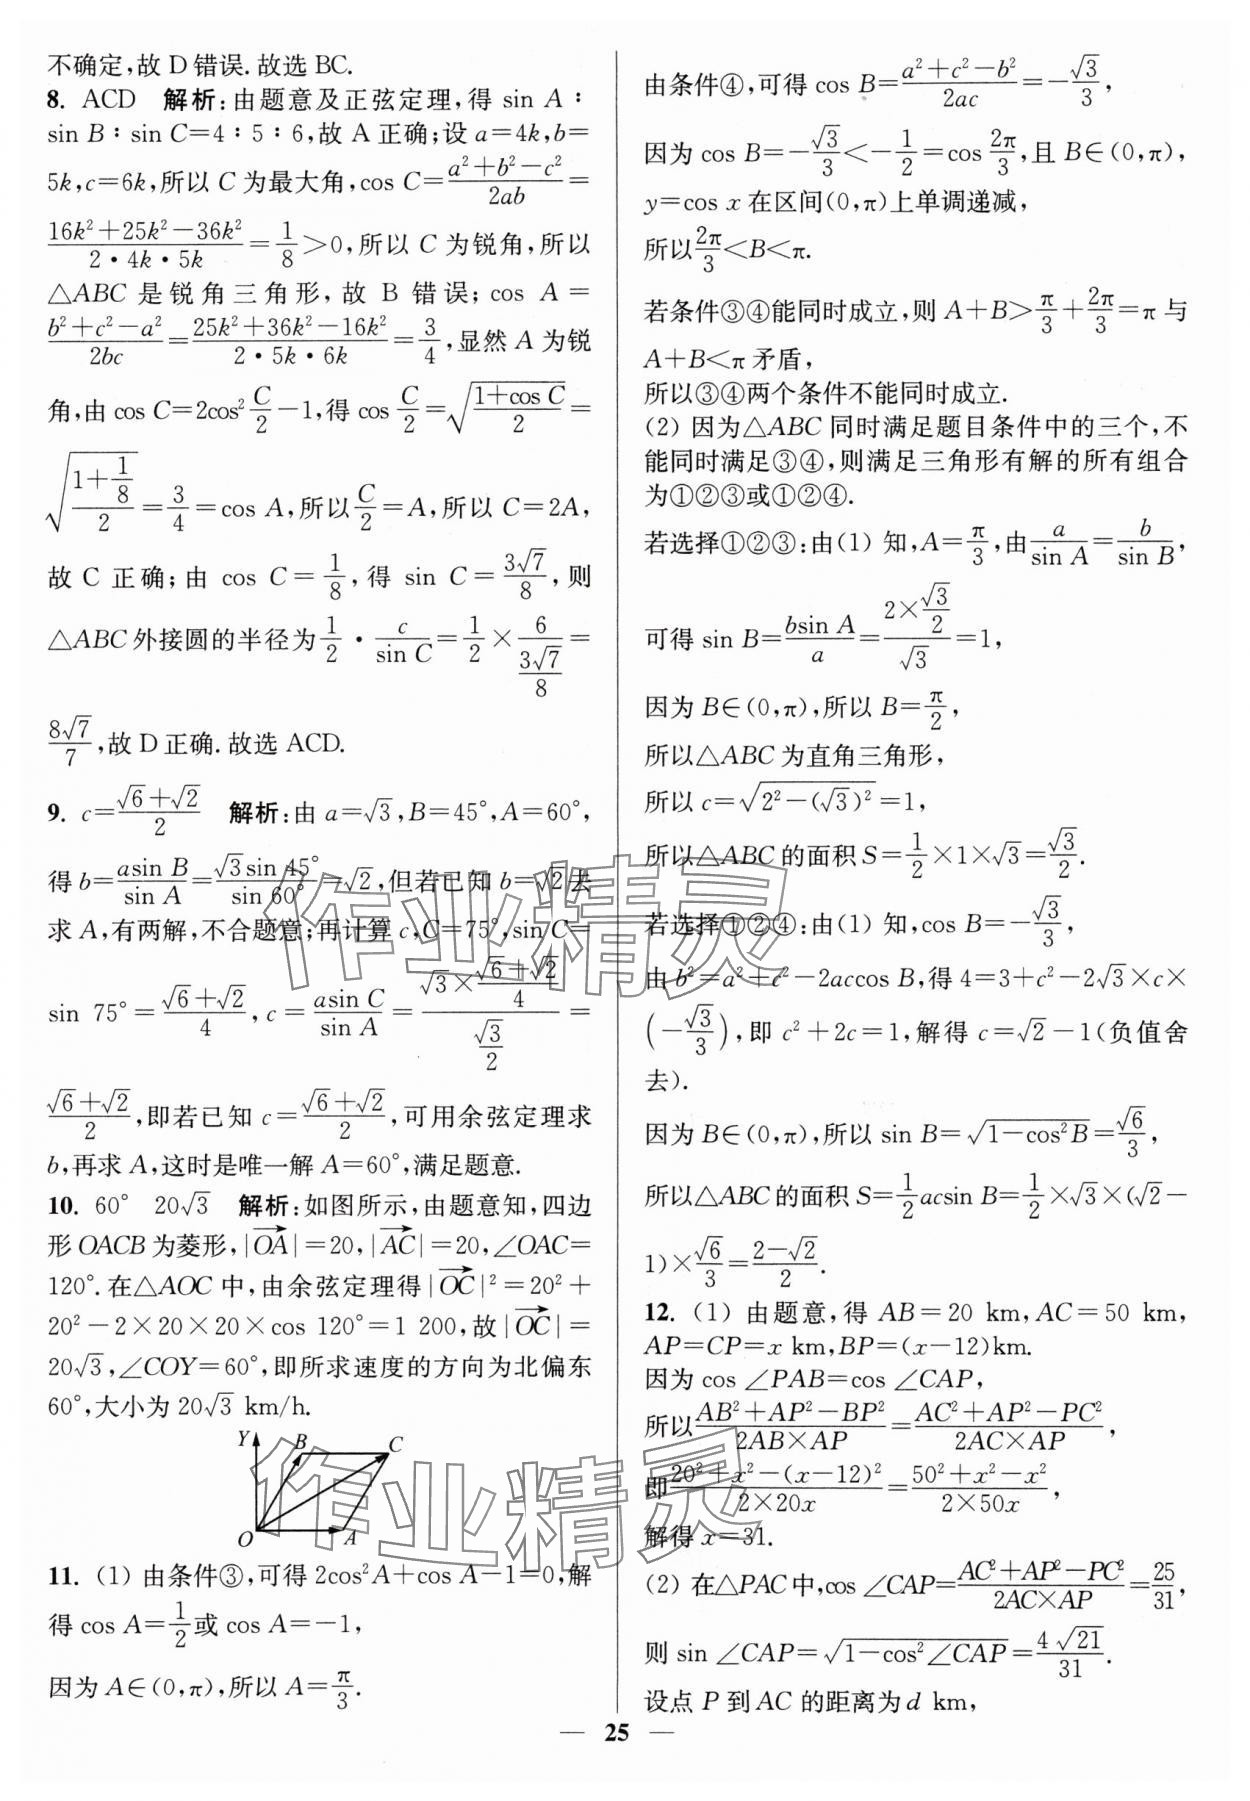 不确定,故 D 错误.故选 BC.
8. ACD 解析:由题意及正弦定理,得 sin A∶
sin B∶sin C=4∶5∶6,故 A 正确;设 a=4k,b=
5k,c=6k,所以 C 为最大角,cos C=\frac{a²+b²-c²}{2ab}=
\frac{16k²+25k²-36k²}{2·4k·5k}=\frac{1}{8}>0,所以 C 为锐角,所以
△ABC 是锐角三角形,故 B 错误;cos A=
\frac{b²+c²-a²}{2bc}=\frac{25k²+36k²-16k²}{2·5k·6k}=\frac{3}{4},显然 A 为锐
角,由 cos C=2cos²\frac{C}{2}-1,得 cos \frac{C}{2}=\sqrt{\frac{1+cos C}{2}}=
\sqrt{\frac{1+\frac{1}{8}}{2}}=\frac{3}{4}=cos A,所以\frac{C}{2}=A,所以 C=2A,
故 C 正确;由 cos C=\frac{1}{8},得 sin C=\frac{3√7}{8},则
△ABC 外接圆的半径为\frac{1}{2}·\frac{c}{sin C}=\frac{1}{2}×\frac{6}{\frac{3√7}{8}}=
\frac{8√7}{7},故 D 正确.故选 ACD.
9. c=\frac{√6+√2}{2} 解析:由 a=√3,B=45°,A=60°,
得 b=\frac{asin B}{sin A}=\frac{√3sin 45°}{sin 60°}=√2,但若已知 b=√2去
求 A,有两解,不合题意;再计算 c,C=75°,sin C=
sin 75°=\frac{√6+√2}{4},c=\frac{asin C}{sin A}=\frac{√3×\frac{√6+√2}{4}}{\frac{√3}{2}}=
\frac{√6+√2}{2},即若已知 c=\frac{√6+√2}{2},可用余弦定理求
b,再求 A,这时是唯一解 A=60°,满足题意.
10. 60° 20√3 解析:如图所示,由题意知,四边
形 OACB 为菱形,|\overrightarrow{OA}|=20,|\overrightarrow{AC}|=20,∠OAC=
120°.在△AOC 中,由余弦定理得|\overrightarrow{OC}|²=20²+
20²-2×20×20×cos 120°=1 200,故|\overrightarrow{OC}|=
20√3,∠COY=60°,即所求速度的方向为北偏东
60°,大小为 20√3 km/h.
Y B C
O A
11. (1) 由条件③,可得 2cos²A+cos A-1=0,解
得 cos A=\frac{1}{2}或 cos A=-1,
因为 A∈(0,π),所以 A=\frac{π}{3}.
由条件④,可得 cos B=\frac{a²+c²-b²}{2ac}=-\frac{√3}{3},
因为 cos B=-\frac{√3}{3}<-\frac{1}{2}=cos \frac{2π}{3},且 B∈(0,π),
y=cos x 在区间(0,π)上单调递减,
所以\frac{2π}{3}<B<π.
若条件③④能同时成立,则 A+B>\frac{π}{3}+\frac{2π}{3}=π 与
A+B<π 矛盾,
所以③④两个条件不能同时成立.
(2) 因为△ABC 同时满足题目条件中的三个,不
能同时满足③④,则满足三角形有解的所有组合
为①②③或①②④.
若选择①②③:由(1) 知,A=\frac{π}{3},由\frac{a}{sin A}=\frac{b}{sin B},
可得 sin B=\frac{bsin A}{a}=\frac{2×\frac{√3}{2}}{√3}=1,
因为 B∈(0,π),所以 B=\frac{π}{2},
所以△ABC 为直角三角形,
所以 c=\sqrt{2²-(√3)²}=1,
所以△ABC 的面积 S=\frac{1}{2}×1×√3=\frac{√3}{2}.
若选择①②④:由(1) 知,cos B=-\frac{√3}{3},
由 b²=a²+c²-2accos B,得 4=3+c²-2√3×c×
(-\frac{√3}{3}),即 c²+2c=1,解得 c=√2-1(负值舍
去).
因为 B∈(0,π),所以 sin B=\sqrt{1-cos²B}=\frac{√6}{3},
所以△ABC 的面积 S=\frac{1}{2}acsin B=\frac{1}{2}×√3×(√2-
1)×\frac{√6}{3}=\frac{2-√2}{2}.
12. (1) 由题意,得 AB=20 km,AC=50 km,
AP=CP=x km,BP=(x-12)km.
因为 cos ∠PAB=cos ∠CAP,
所以\frac{AB²+AP²-BP²}{2AB×AP}=\frac{AC²+AP²-PC²}{2AC×AP},
即\frac{20²+x²-(x-12)²}{2×20x}=\frac{50²+x²-x²}{2×50x},
解得 x=31.
(2) 在△PAC 中,cos ∠CAP=\frac{AC²+AP²-PC²}{2AC×AP}=\frac{25}{31},
则 sin ∠CAP=\sqrt{1-cos²∠CAP}=\frac{4√21}{31}.
设点 P 到 AC 的距离为 d km,
— 25 —
作业精灵
作业精灵